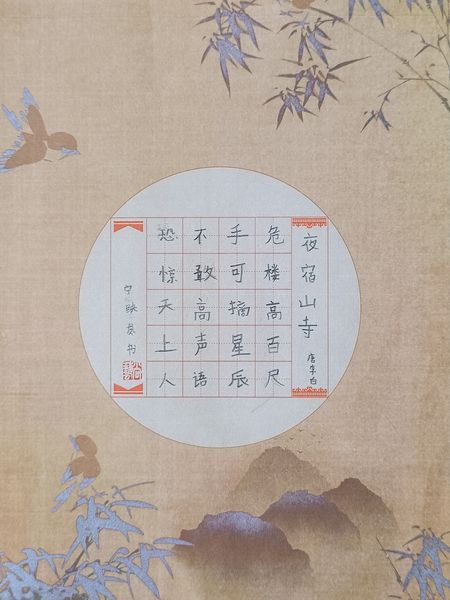 夜宿山寺
唐李白
危楼高百尺
手可摘星辰
不敢高声语
恐惊天上人